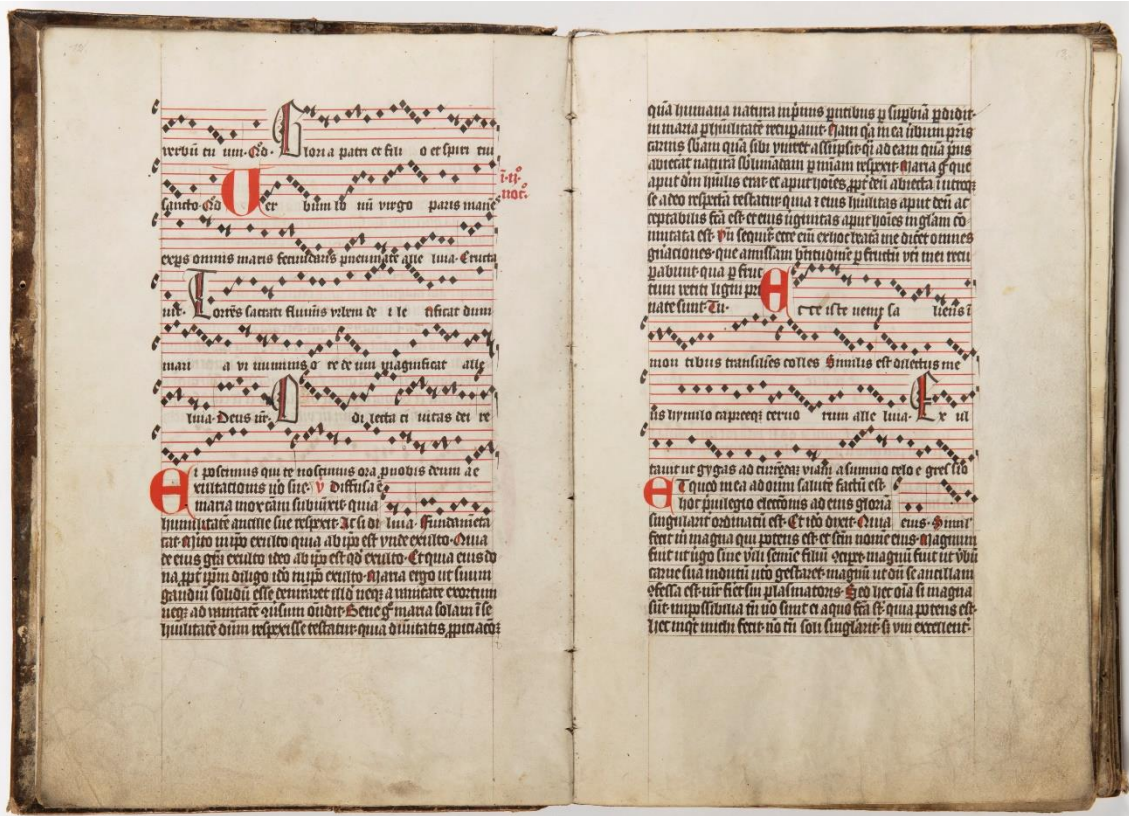 verbũ tu um. Q̃d. Gloria patri et fili o et spiri tui
sancto. Q̃d Uer bum bo nũ virgo paris manẽs
expers omnis maris fecundaris pneumate alle luia. Eructa
uit. Torrẽs sacrati fluminis urbem de i le tificat dum
mari a vi o re de um magnificat alle
luia. Deus nr̃. Di lecta ci uitas dei re
i poscimus qui te noscimus ora ꝓnobis deum a e
Exultacionis sue. v Diffusa ẽ
maria inox subiũxit. quia
humilitatẽ ancille sue respexit. luia. Fundamẽta
exulto quia ab ip̃o est vnde exulto. Quia
de eius gr̃a exulto ideo ab ip̃o est qd̃ exulto. Et quia eius do
na ꝓpt ip̃m diligo ideo in ip̃o exulto. Maria ergo ut suum
gaudiũ solidũ esse illd̃ neqꝫ a vanitate exortum
neqꝫ ad vanitatẽ oñdit. Bene gͦ maria solam ĩ se
hũilitatẽ dñm respexisse testatur. quia diuinitatis
qũa humana natura in pͥmis ꝑ suꝑbiã ꝑdidit.
in maria ꝑ hũilitatẽ recuꝑauit. Nam qͥa in ea ũbum pr̃is
carnis sbãm quã sibi vniret assũpsit. qͥ ad eam quã pͥus
abiecat naturã ꝑ mr̃am respexit. Maria gͦ que
aput dm̃ hũilis erat et aput hoĩes ꝓpt deũ abiecta
se a deo respectã testatur. quia et eius hũilitas aput deũ ac
ceptabilis fc̃a est. et eius aput hoĩes in glam cõ
mutata est. Vñ sequit̃ ecce eni ex hoc btãm me dicẽt omnes
gnaciones. que amissam btitudinẽ ꝑ fructũ vẽt mei recu
ꝑabunt. qua ꝑ fruc
tum vetiti ligni pri
uate sunt. Tu. Ecce iste venit sa liens ĩ
mon tibus transiliẽs colles Similis est dilectus me
us hynulo capreeqꝫ ceruo rum alle luia. Ex ul
tauit ut gygas ad currẽdã viam a summo celo e gres sio
ET qͦd in ea ad oĩm salutẽ factũ est.
hoc pͥuilegio eleccionis ad eius gloriã
singularit̃ ordinatũ est. Et ido dixit. Quia eius. Simil
fecit m̃ magna qui potens est. et sc̃m nomẽ eius. Magnum
fuit ut v̊go sine v̊ili semĩe filiũ magnũ fuit ut v̊bũ
carne sua indutũ gestaret. magnũ ut dũ se ancillam
est fieret sui plasmatoris. Sed hec oĩa si magna
sũt impossibilia tñ nõ sunt. ei a quo fc̃a st̃. quia potens est.
hec inqͥt michi fecit. nõ tñ soli singlarit̃. si vni excellent̃.
i. ti.
noc.